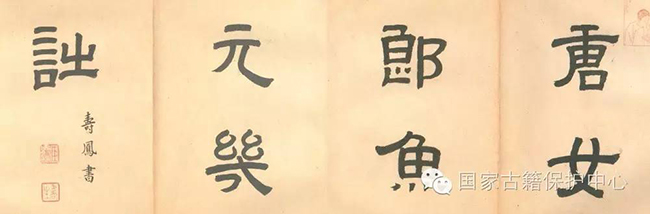 唐女
郎魚
元幾
詩
壽鳳書
国家古籍保护中心